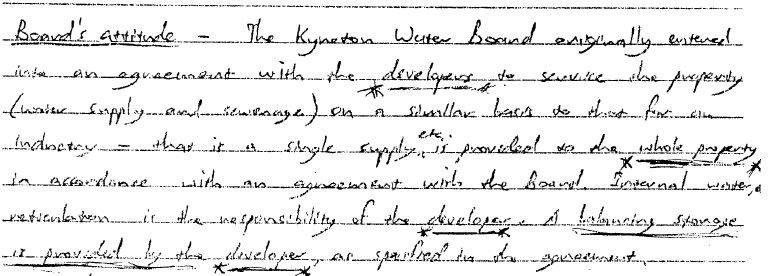 Board's attitude - The Kyneton Water Board originally entered
into an agreement with the *developers* to service the property
(water supply and sewerage) on a similar basis to that for an
industry - that is a single supply, etc. is provided to the *whole property*
in accordance with an agreement with the Board. Internal water
reticulation is the responsibility of the *developer*. A balancing storage
is provided by the *developer*, as specified in the agreement.